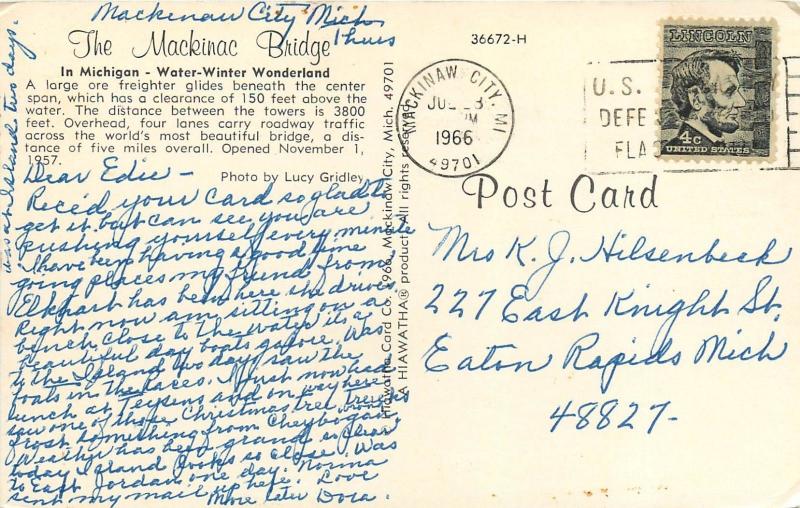 Mackinaw City Mich
Thurs
The Mackinac Bridge
In Michigan - Water-Winter Wonderland
A large ore freighter glides beneath the center
span, which has a clearance of 150 feet above the
water. The distance between the towers is 3800
feet. Overhead, four lanes carry roadway traffic
across the world's most beautiful bridge, a dis-
tance of five miles overall. Opened November 1,
1957.
Photo by Lucy Gridley
Dear Edie -
Rec'd your card so glad to
get it but can see you are
pushing yourself every minute
I have been having a good time
going places my friend from
Elkhart has been here she drives
Right now am sitting on a
bench close to the water its a
beautiful day boats galore. Was
to the Island two days saw the
boats in the races. Just now had
lunch at Teysens and on way here
saw one of those Christmas tree
frost something from Cheybogan
Weather has been grand so clear
today Island looks so close. Was
to East Jordan one day. Norma
sent my mail up here. Love
More later Dora.
was at Island two days.
Hiawatha Card Co. 1966, Mackinaw City, Mich. 49701
A HIAWATHA® product. All rights reserved.
36672-H
MACKINAW CITY, MI
JUL 28
PM
1966
49701
U.S.
DEFE
FLA
LINCOLN
4c
UNITED STATES
Post Card
Mrs K. J. Hilsenbeck
227 East Knight St.
Eaton Rapids Mich
48827-